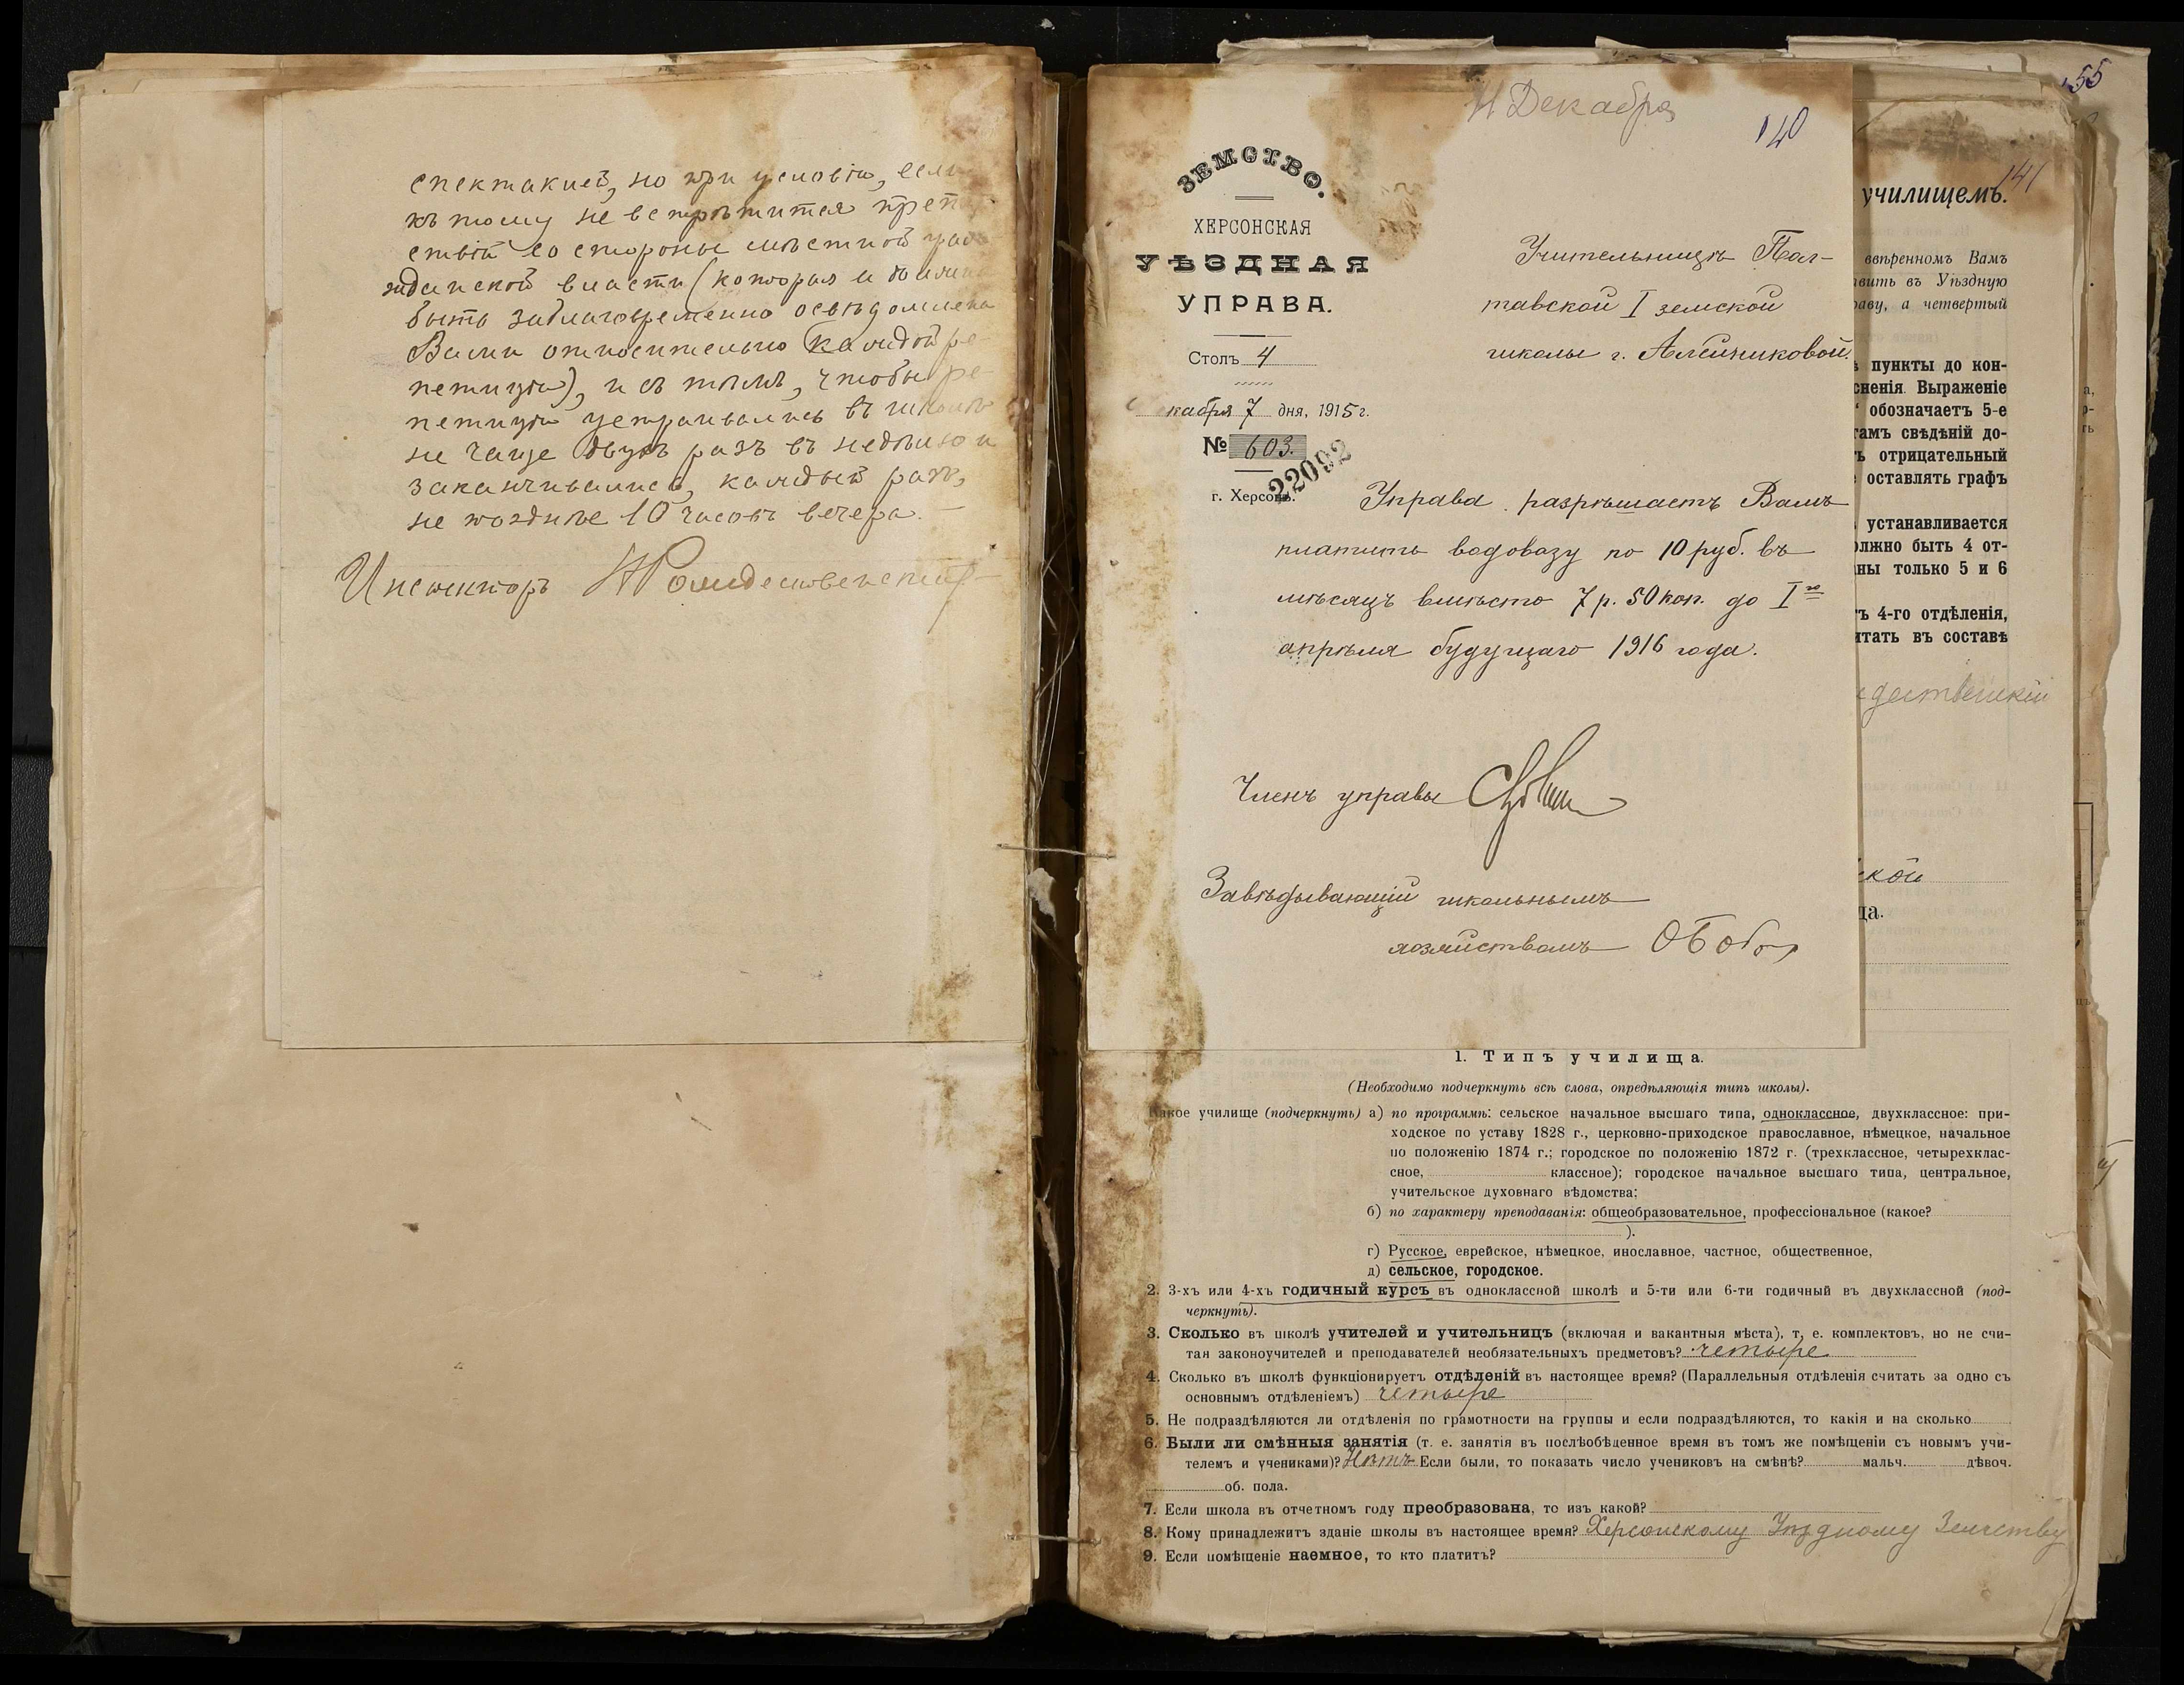 спектаклей, но при условіи, если
къ тому не встрѣтится препят
ствій со стороны мѣстной граж
данской власти (которая и должна
быть заблаговременно освѣдомлена
Вами относительно каждой ре-
петиціи), и съ тѣмъ, чтобы ре-
петиціи устраивались въ школѣ
не чаще двухъ разъ въ недѣлю и
заканчивались, каждый разъ,
не позднѣе 10 часовъ вечера. –
Инспекторъ Н Рождественскій
11 Декабря
140
ЗЕМСТВО.
ХЕРСОНСКАЯ
УѢЗДНАЯ
УПРАВА.
Столъ 4
кабря 7 дня, 1915 г.
№ 603.
22092
г. Херсонъ.
Учительницѣ Пол-
тавской I земской
школы г. Алейниковой.
Управа разрѣшаетъ Вамъ
платить водовозу по 10 руб. въ
мѣсяцъ вмѣсто 7 р. 50 коп. до I го
апрѣля будущаго 1916 года.
Членъ управы
Завѣдывающій школьнымъ
хозяйствомъ
155
141
училищемъ.
ввѣренномъ Вамъ
вить въ Уѣздную
раву, а четвертый
пункты до кон-
сненія. Выраженіе
обозначаетъ 5-е
тамъ свѣдѣній до-
ъ отрицательный
оставлять графъ
устанавливается
олжно быть 4 от-
ны только 5 и 6
ъ 4-го отдѣленія,
итать въ составѣ
дественскій
ской
да.
1. Типъ училища.
(Необходимо подчеркнуть всѣ слова, опредѣляющія типъ школы).
Какое училище (подчеркнуть) а) по программѣ: сельское начальное высшаго типа, одноклассное, двухклассное: при-
ходское по уставу 1828 г., церковно-приходское православное, нѣмецкое, начальное
по положенію 1874 г.; городское по положенію 1872 г. (трехклассное, четырехклас-
сное, классное); городское начальное высшаго типа, центральное,
учительское духовнаго вѣдомства;
б) по характеру преподаванія: общеобразовательное, профессіональное (какое?
).
г) Русское, еврейское, нѣмецкое, инославное, частное, общественное,
д) сельское, городское.
2. 3-хъ или 4-хъ годичный курсъ въ одноклассной школѣ и 5-ти или 6-ти годичный въ двухклассной (под-
черкнуть).
3. Сколько въ школѣ учителей и учительницъ (включая и вакантныя мѣста), т. е. комплектовъ, но не счи-
тая законоучителей и преподавателей необязательныхъ предметовъ? четыре
4. Сколько въ школѣ функціонируетъ отдѣленій въ настоящее время? (Параллельныя отдѣленія считать за одно съ
основнымъ отдѣленіемъ) четыре
5. Не подраздѣляются ли отдѣленія по грамотности на группы и если подраздѣляются, то какія и на сколько
6. Были ли смѣнныя занятія (т. е. занятія въ послѣобѣденное время въ томъ же помѣщеніи съ новымъ учи-
телемъ и учениками)? Нѣтъ Если были, то показать число учениковъ на смѣнѣ? мальч. дѣвоч.
об. пола.
7. Если школа въ отчетномъ году преобразована, то изъ какой?
8. Кому принадлежитъ зданіе школы въ настоящее время? Херсонскому Уѣздному Земству
9. Если помѣщеніе наемное, то кто платитъ?